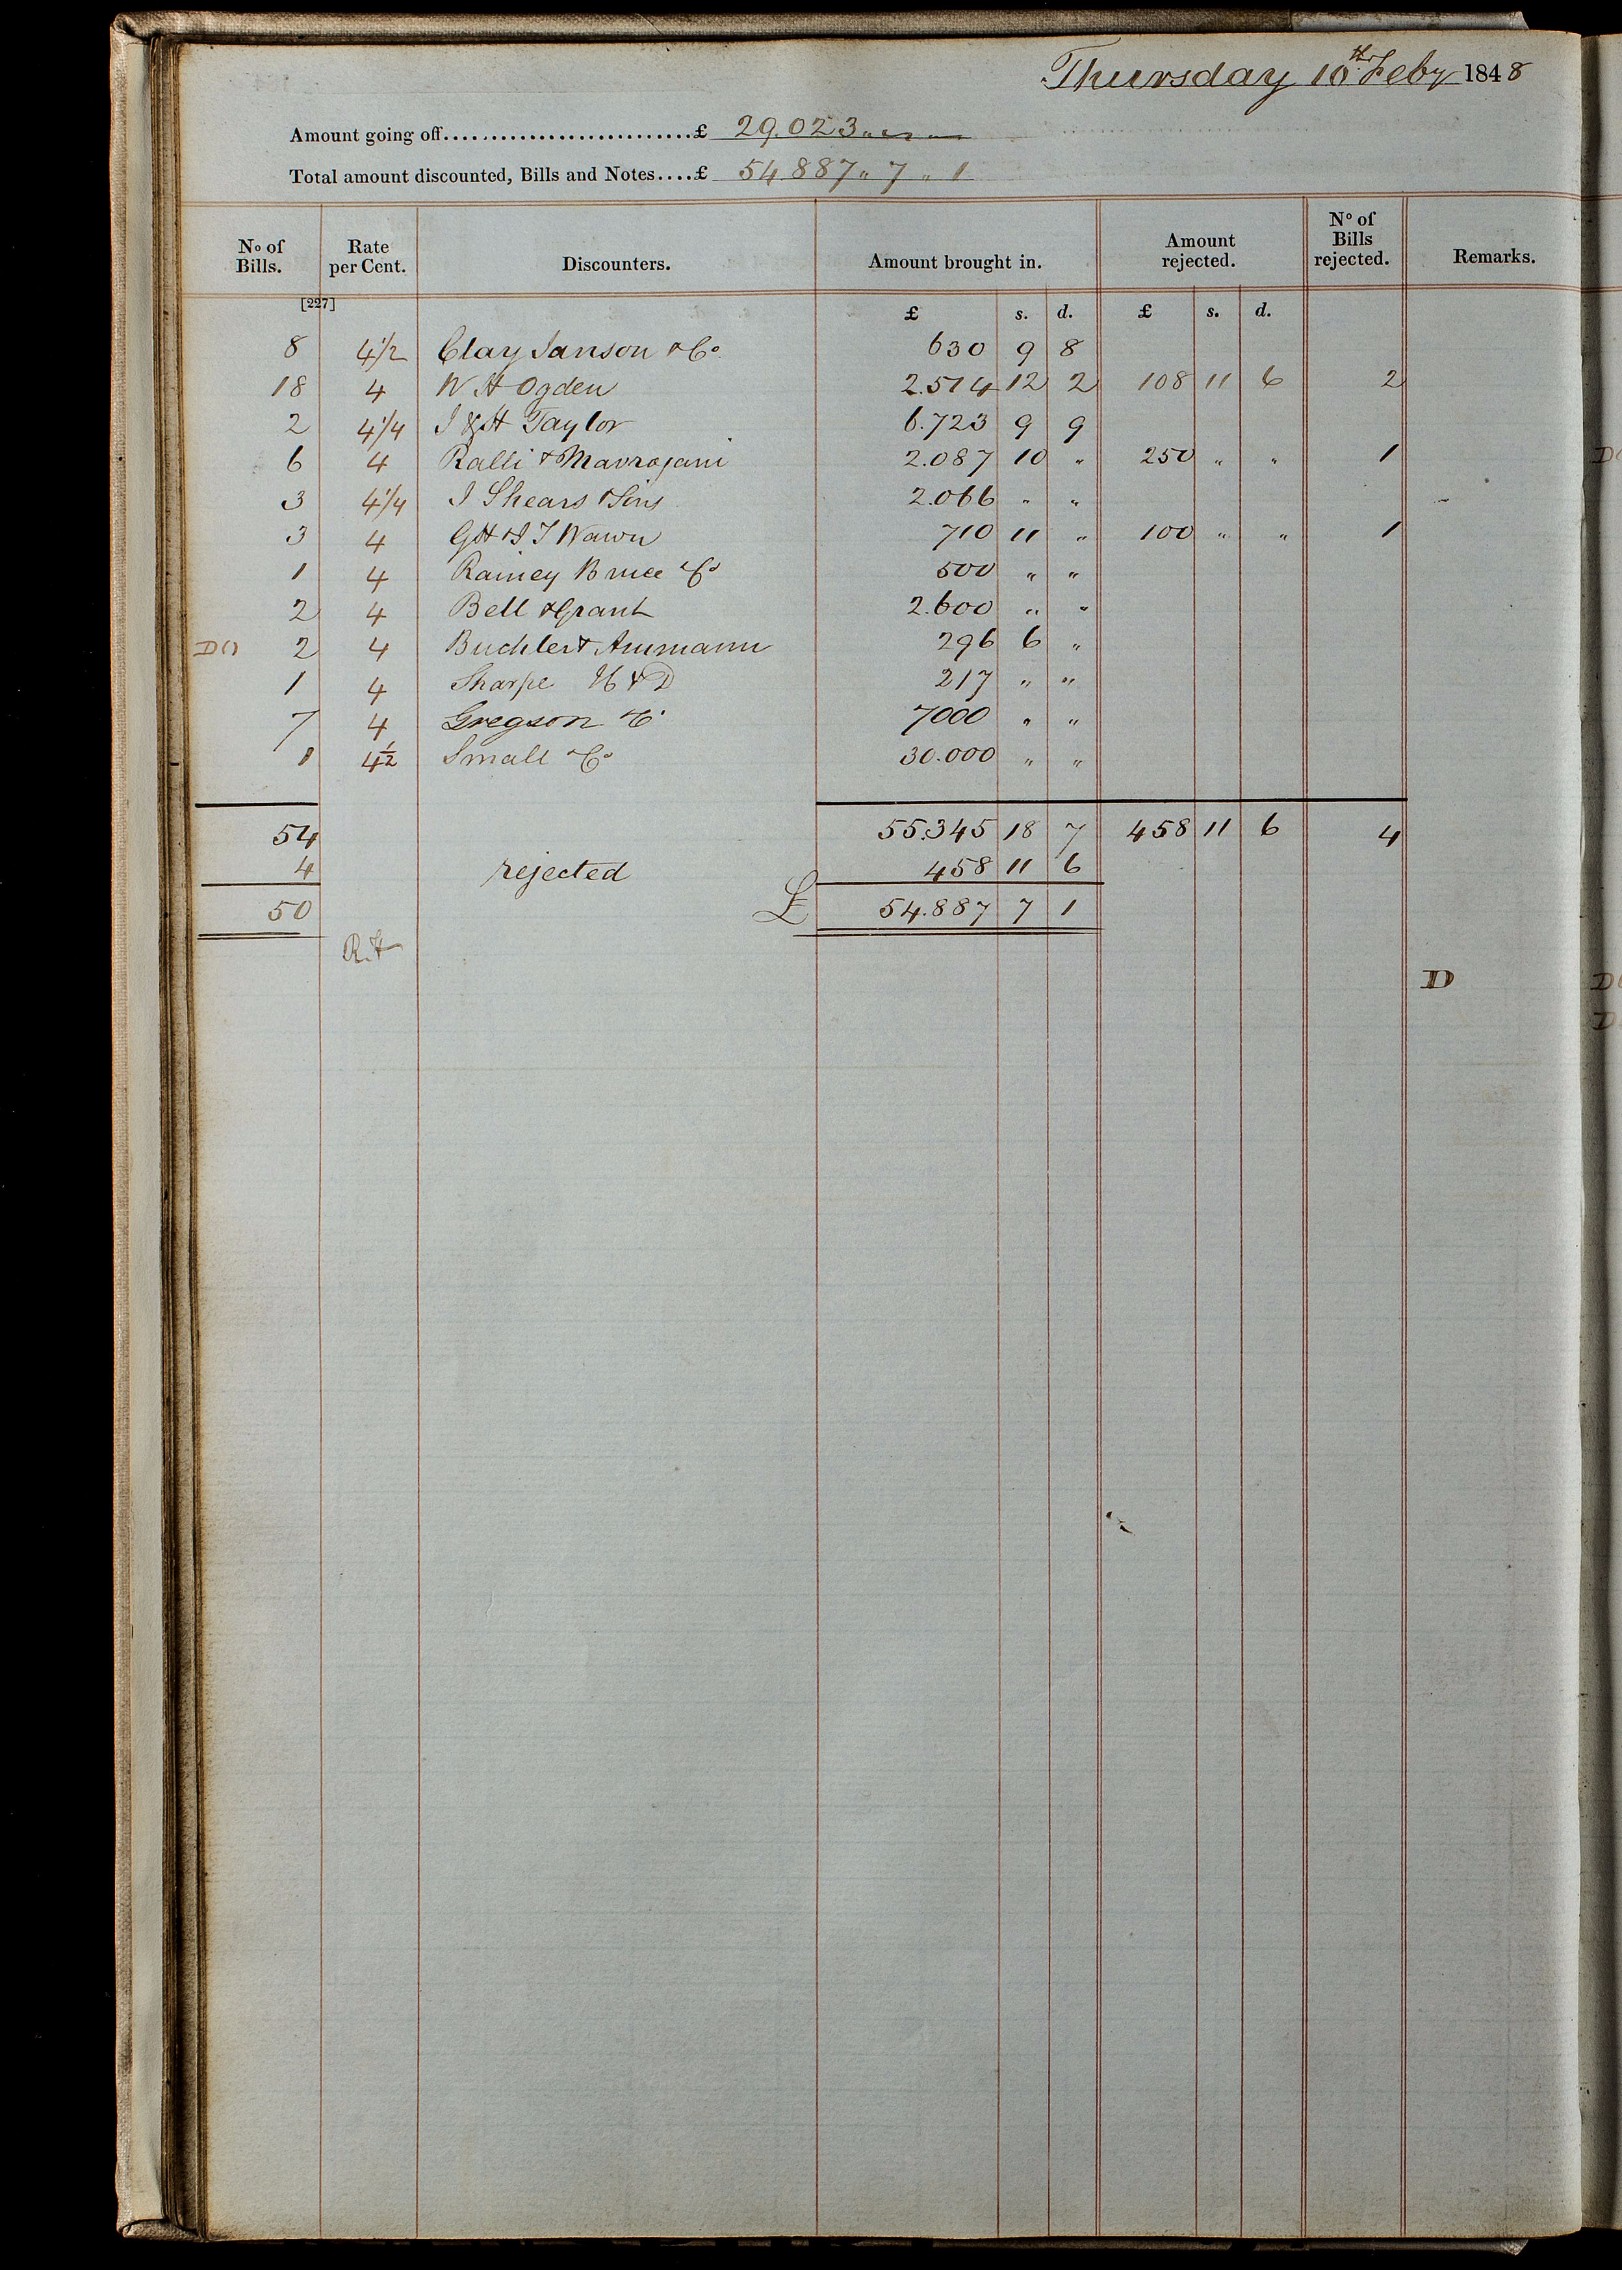 Thursday 10th Feby 1848
Amount going off..........................£ 29.023 „ „
Total amount discounted, Bills and Notes....£ 54.887 „ 7 „ 1
No of Bills. Rate per Cent. Discounters. Amount brought in. Amount rejected. No of Bills rejected. Remarks.
[227]
£ s. d. £ s. d.
8 4 1/2 Clay Janson & Co 630 9 8
18 4 W H Ogden 2.514 12 2 108 11 6 2
2 4 1/4 J & H Taylor 6.723 9 9
6 4 Ralli & Mavrojani 2.087 10 „ 250 „ „ 1
3 4 1/4 J Shears & Sons 2.066 „ „
3 4 GH & J T Wawn 710 11 „ 100 „ „ 1
1 4 Rainey Bruce & Co 500 „ „
2 4 Bell & Grant 2.600 „ „
D() 2 4 Buchler & Ammann 296 6 „
1 4 Sharpe H & D 217 „ „
7 4 Gregson & Co 7000 „ „
1 4 1/2 Small & Co 30.000 „ „
54 55.345 18 7 458 11 6 4
4 rejected 458 11 6
50 £ 54.887 7 1
D